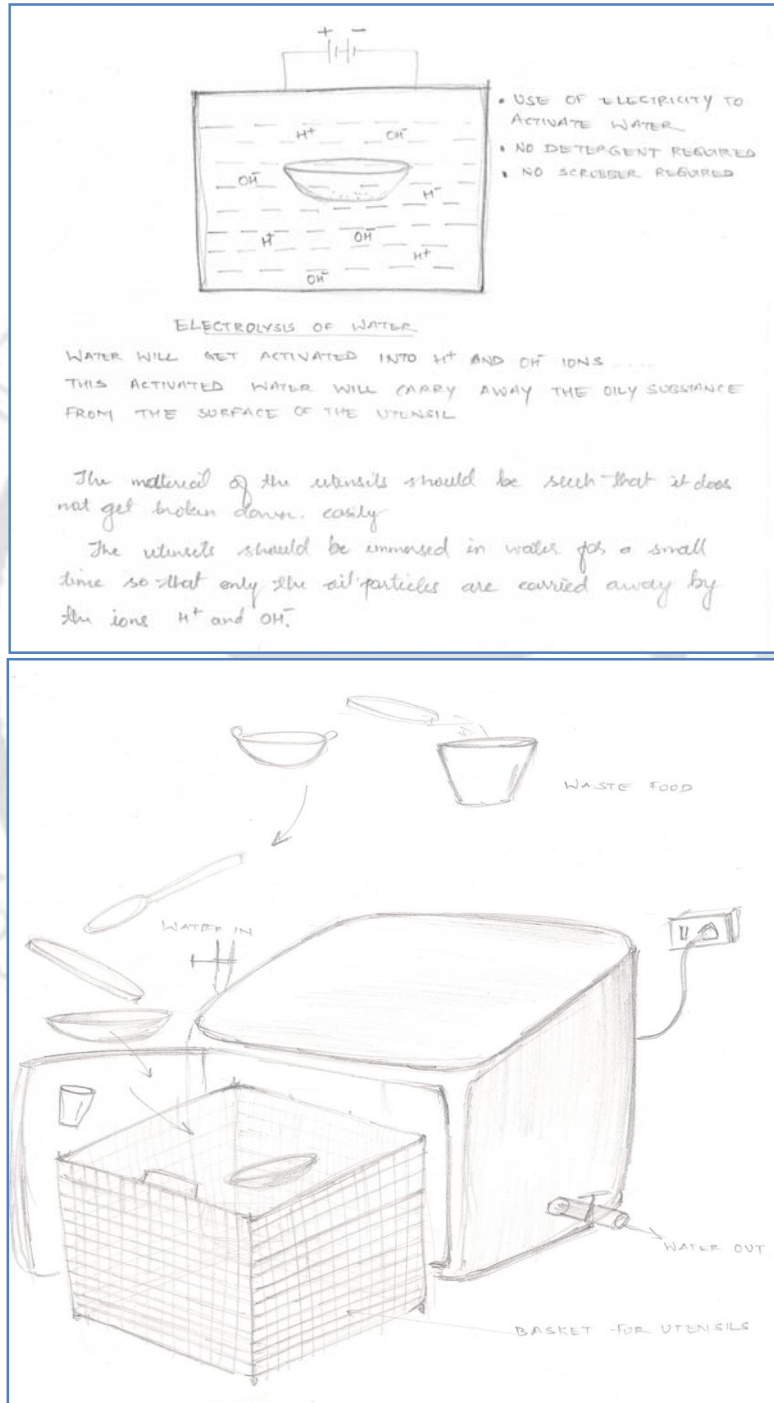 + −
• USE OF ELECTRICITY TO
ACTIVATE WATER
• NO DETERGENT REQUIRED
• NO SCRUBBER REQUIRED
H⁺ OH⁻
OH⁻ H⁻
H⁺ OH⁻
H⁺
OH⁻
ELECTROLYSIS OF WATER
WATER WILL GET ACTIVATED INTO H⁺ AND OH⁻ IONS ....
THIS ACTIVATED WATER WILL CARRY AWAY THE OILY SUBSTANCE
FROM THE SURFACE OF THE UTENSIL
The material of the utensils should be such that it does
not get broken down. easily
The utensils should be immersed in water for a small
time so that only the oil particles are carried away by
the ions H⁺ and OH⁻.
WASTE FOOD
WATER IN
WATER OUT
BASKET FOR UTENSILS